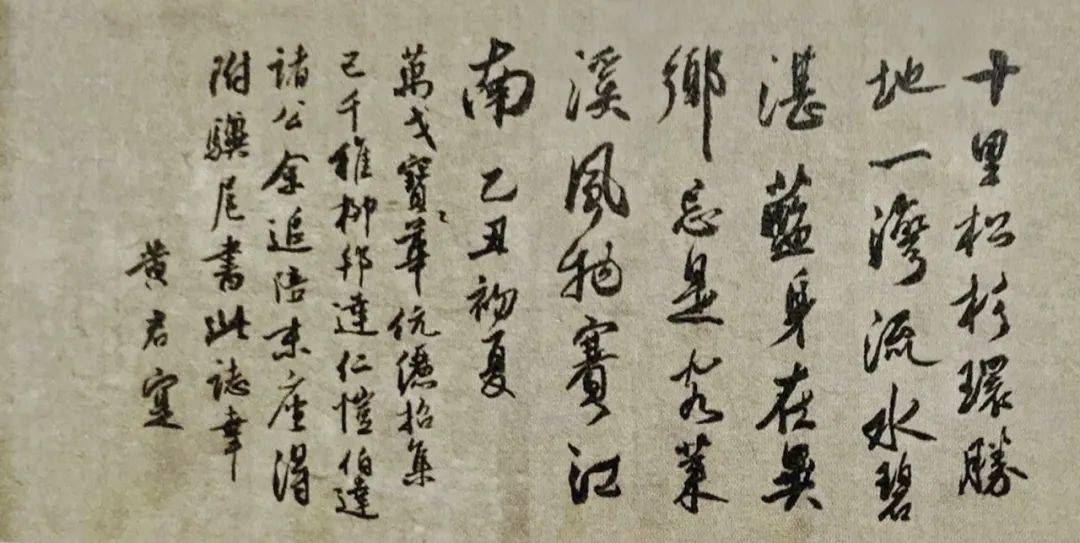 十里松杉環勝
地一灣流水碧
湛藍身在異
鄉忘是客萊
溪風物賽江
南 乙丑初夏
萬戈寶華伉儷招集
己千稚柳邦達仁愷伯達
諸公余追陪末座得
附驥尾書此誌幸
黃君寔